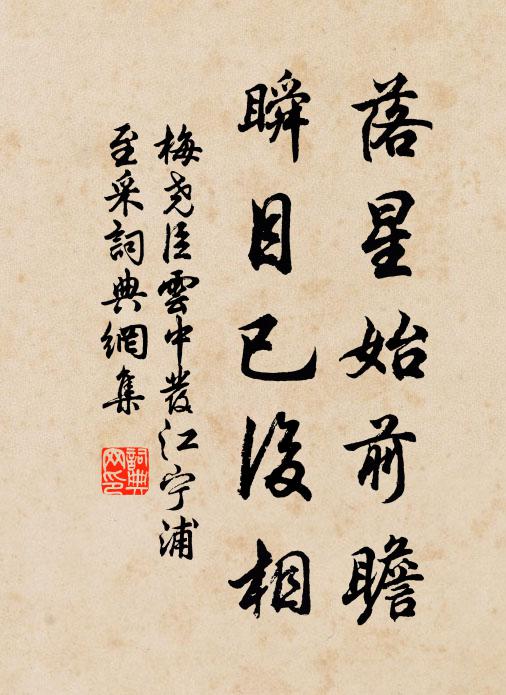 落星始前瞻
瞬目已後相
梅堯臣雲中發江寧浦
至采詞典網集
詞典
网印